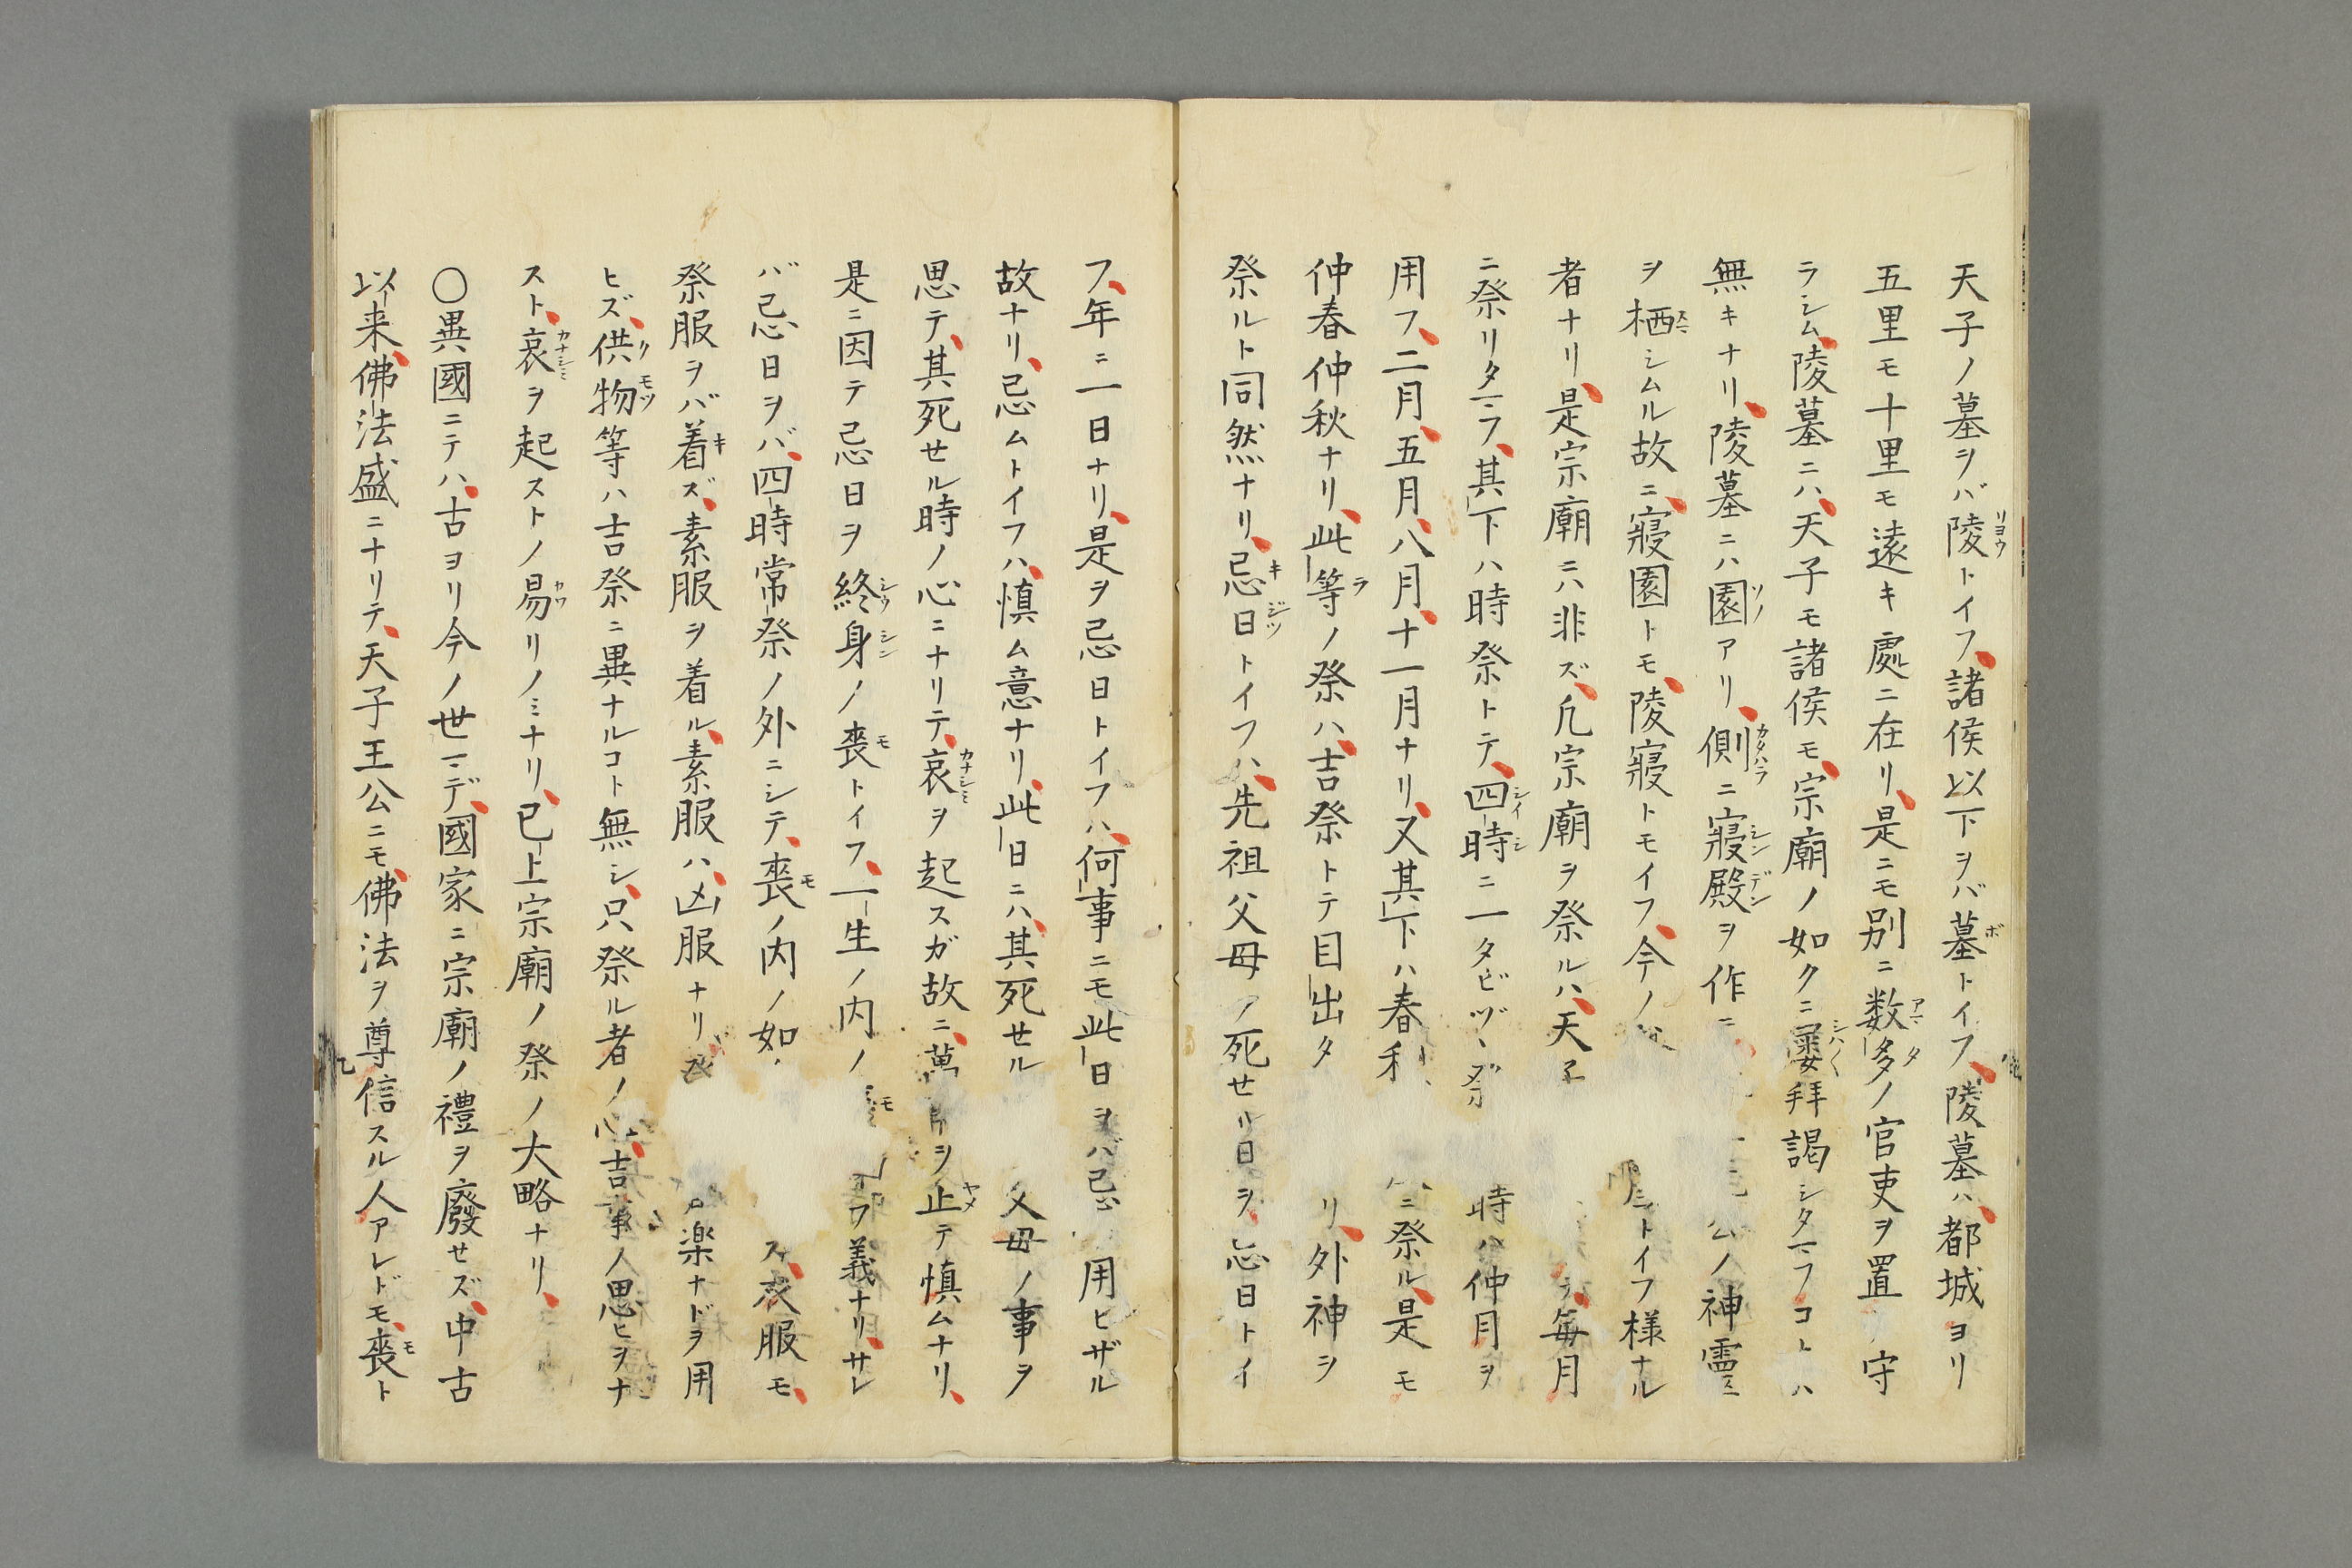 天子ノ墓ヲバ陵トイフ、諸侯以下ヲバ墓トイフ、陵墓ハ、都城ヨリ
五里モ十里モ遠キ處ニ在リ、是ニモ別ニ数多ノ官吏ヲ置 守
ラシム、陵墓ニハ、天子モ諸侯モ、宗廟ノ如クニ屢拝謁シタマフコトハ
無キナリ、陵墓ニハ園アリ、側ニ寢殿ヲ作 公ノ神霊
ヲ栖シムル故ニ、寢園トモ、陵寢トモイフ、今ノ トイフ様ナル
者ナリ、是宗廟ニハ非ズ、凡宗廟ヲ祭ルハ、天子 毎月
ニ祭リタマフ、其下ハ時祭トテ、四時ニ一タビヅヽ祭 時ハ仲月ヲ
用フ、二月、五月、八月、十一月ナリ、又其下ハ春秋 ニ祭ル、是モ
仲春仲秋ナリ、此等ノ祭ハ、吉祭トテ目出タ リ、外神ヲ
祭ルト同然ナリ、忌日トイフハ、先祖父母ノ死セル日ヲ、忌日トイ
フ、年ニ一日ナリ、是ヲ忌日トイフハ、何事ニモ此日ヲバ忌 用ヒザル
故ナリ、忌ムトイフハ、慎ム意ナリ、此日ニハ、其死セル 父母ノ事ヲ
思テ、其死セル時ノ心ニナリテ、哀ヲ起スガ故ニ、萬 ヲ止テ慎ムナリ、
是ニ因テ忌日ヲ終身ノ喪トイフ、一生ノ内ノ フ義ナリ、サレ
バ忌日ヲバ、四時常祭ノ外ニシテ、喪ノ内ノ如 ス、衣服モ、
祭服ヲバ着ズ、素服ヲ着ル、素服ハ、凶服ナリ、 楽ナドヲ用
ヒズ、供物等ハ吉祭ニ異ナルコト無シ、只祭ル者ノ心、吉事ノ思ヒヲナ
スト、哀ヲ起ストノ易リノミナリ、已上宗廟ノ祭ノ大略ナリ、
〇異國ニテハ、古ヨリ今ノ世マデ、國家ニ宗廟ノ禮ヲ廢セズ、中古
以来、佛法盛ニナリテ、天子王公ニモ、佛法ヲ尊信スル人アレドモ、喪ト